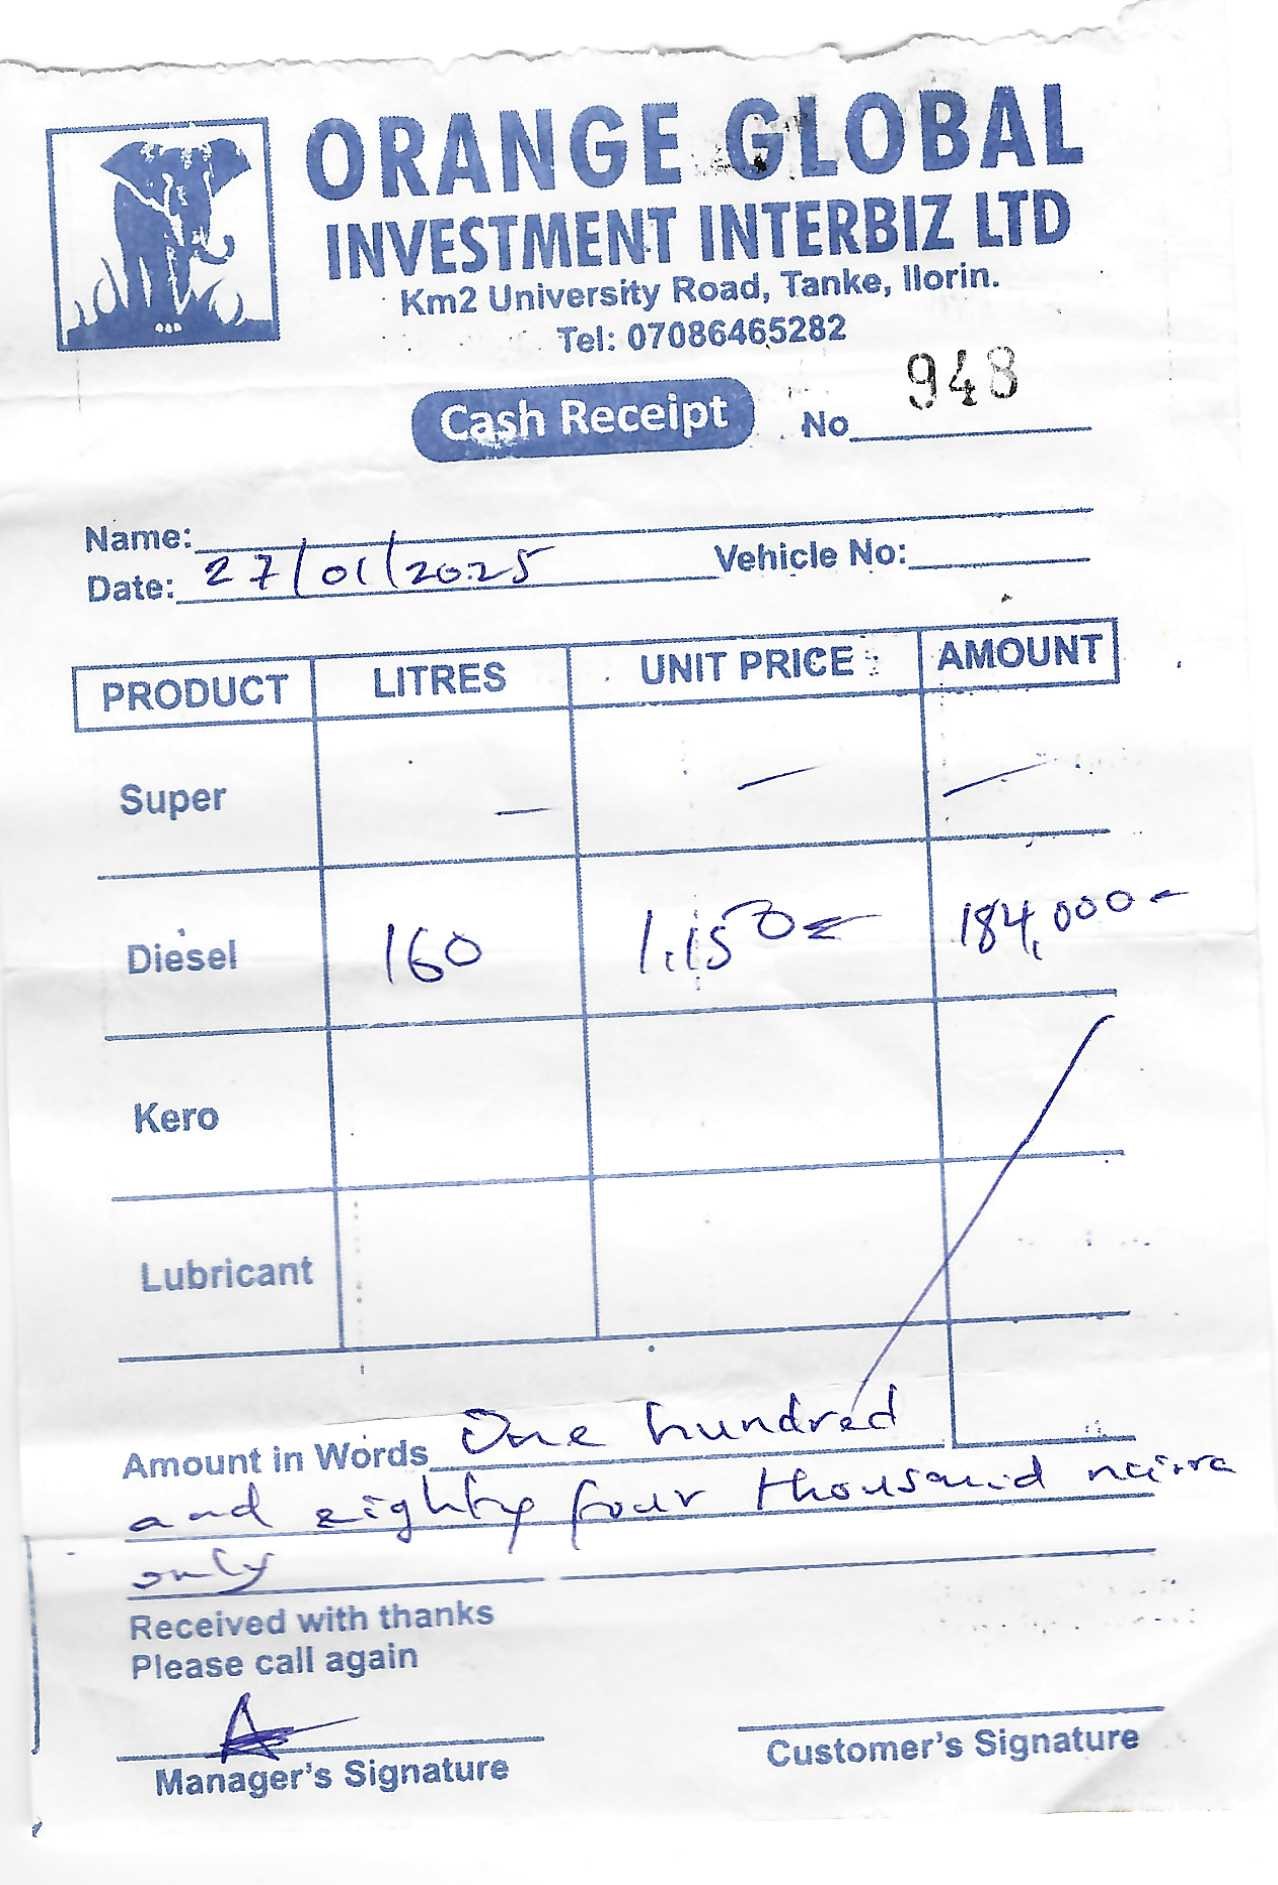 ORANGE GLOBAL
INVESTMENT INTERBIZ LTD
Km2 University Road, Tanke, Ilorin.
Tel: 07086465282
Cash Receipt No 948
Name:
Date: 27/01/2025 Vehicle No:
PRODUCT LITRES UNIT PRICE AMOUNT
Super — — —
Diesel 160 1,150= 184,000-
Kero
Lubricant
Amount in Words One hundred
and eighty four thousand naira
only
Received with thanks
Please call again
Manager's Signature Customer's Signature